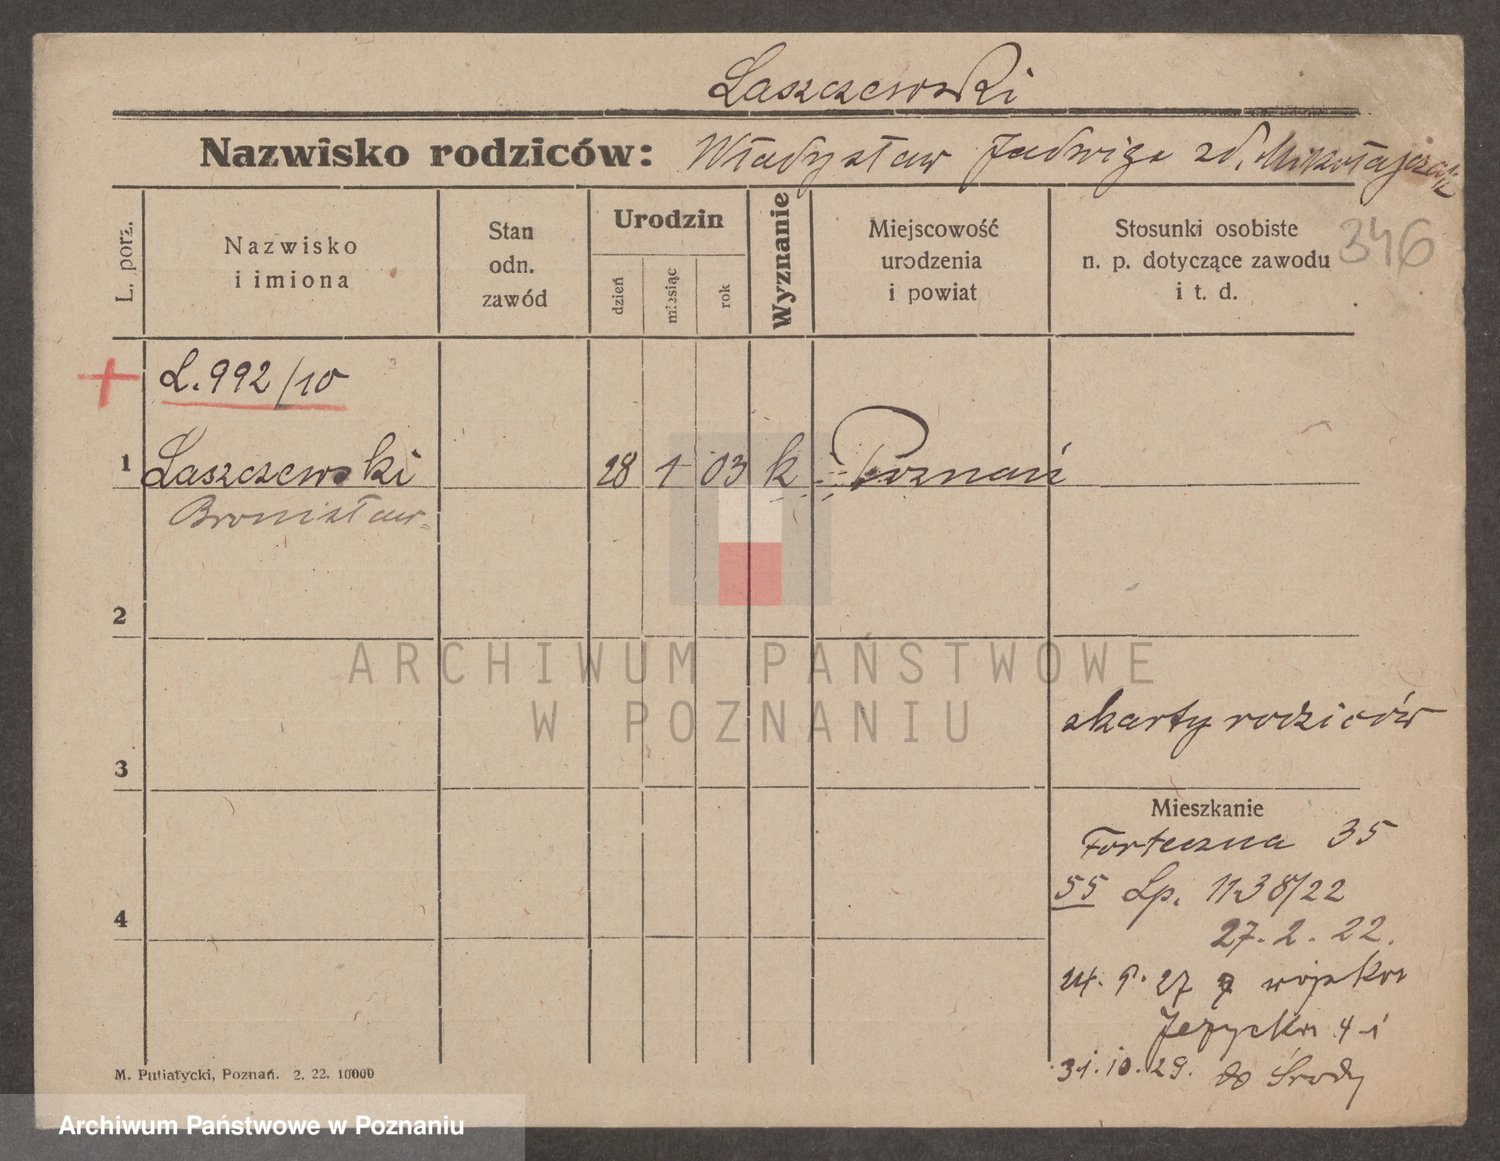 Laszczewski
Nazwisko rodziców: Władysław Jadwiga zd. Mikołajczak
L. porz.
Nazwisko
i imiona
Stan
odn.
zawód
Urodzin
dzień
miesiąc
rok
Wyznanie
Miejscowość
urodzenia
i powiat
Stosunki osobiste
n. p. dotyczące zawodu
i t. d.
346
L. 992/10
1 Laszczewski 28 1 03 k Poznań
Bronisław
2
ARCHIWUM PAŃSTWOWE
W POZNANIU
z karty rodziców
3
Mieszkanie
Forteczna 35
55 Lp. 1138/22
27. 2. 22.
4
24. 9. 27 z wojska
Jeżycka 4
31. 10. 29. do Środy
M. Putiatycki, Poznań. 2. 22. 10000
Archiwum Państwowe w Poznaniu